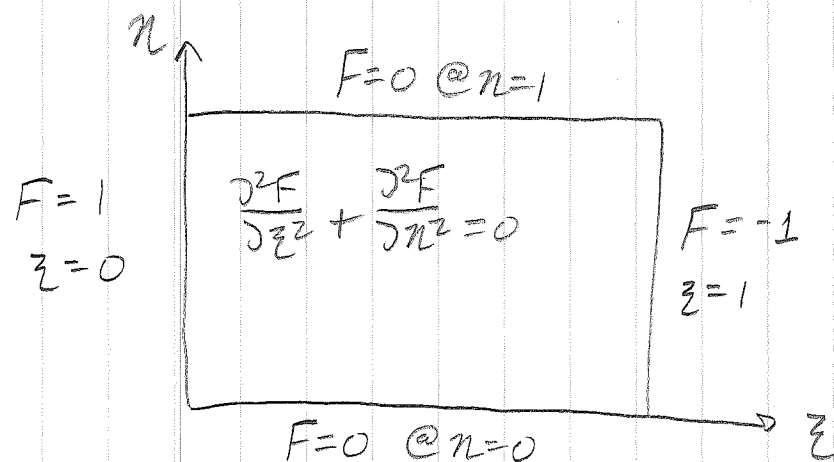 η
F=0 @ η=1
F=1
ξ=0
∂²F/∂ξ² + ∂²F/∂η² = 0
F=-1
ξ=1
F=0 @ η=0
ξ